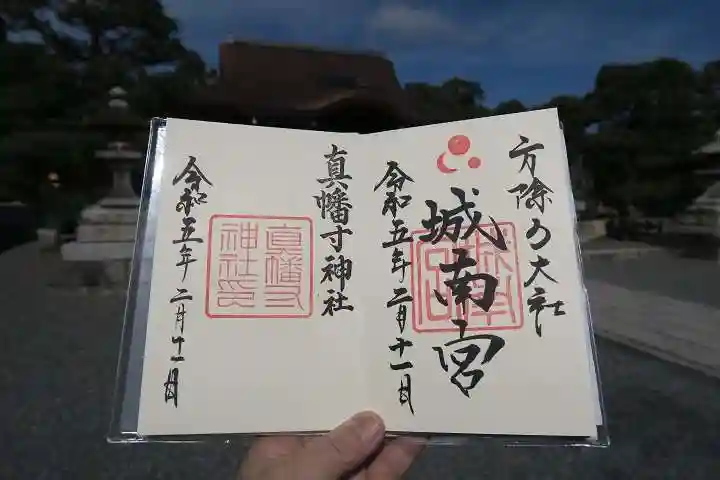 方除の大社
城南宮
令和五年二月十一日
真幡寸神社
真幡寸
神社印
令和五年二月十一日